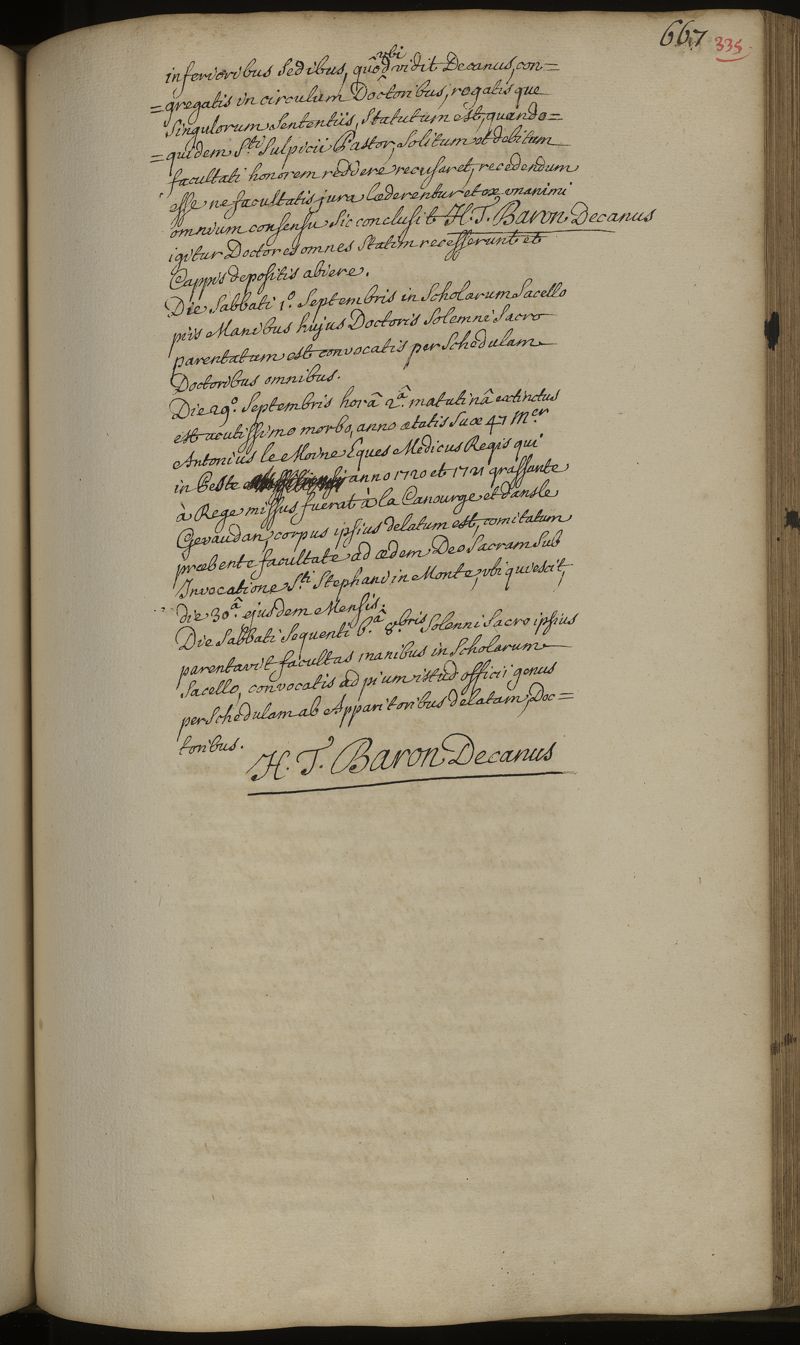 667 335
inferioribus sedibus, quod ubi vidit Decanus, con=
=gregatis in circulum Doctoribus, rogatis que
singulorum sententiis, statutum est, quando=
=quidem Sti Sulpicii Pastor, solitum et debitum
facultati honorem reddere recusaret, recedendum
esse ne facultatis jura læderentur et ex unanimi
omnium consensu sic conclusit H. T. Baron Decanus
igitur Doctores omnes statim recesserunt et
Cappis depositis abiere.
Die Sabbati 1º. Septembris in Scholarum Sacello
piis Manibus hujus Doctoris solemni Sacro
parentatum est convocatis per Schedulam
Doctoribus omnibus.
Die 29º. Septembris horâ 2ª. matutinâ extinctus
est acutissimo morbo, anno ætatis suæ 47 Mer
Antonius le Moine Eques Medicus Regis qui
in Peste anno 1720 et 1721 grassante
à Rege missus fuerat à la Canourge et dans le
Gevaudan, corpus ipsius delatum est, comitatum
præbente facultate ad ædem Deo Sacram sub
Invocatione Sti Stephani in Monte, ubi quiescit,
die 30ª. ejusdem Mensis.
Die Sabbati sequenti 6.ª 8.bris Solenni Sacro ipsius
parentavit facultas manibus in Scholarum
Sacello, convocatis ad pium istud officii genus
per Schedulam ab Apparitoribus delatam, Doc=
toribus.
H. T. Baron Decanus